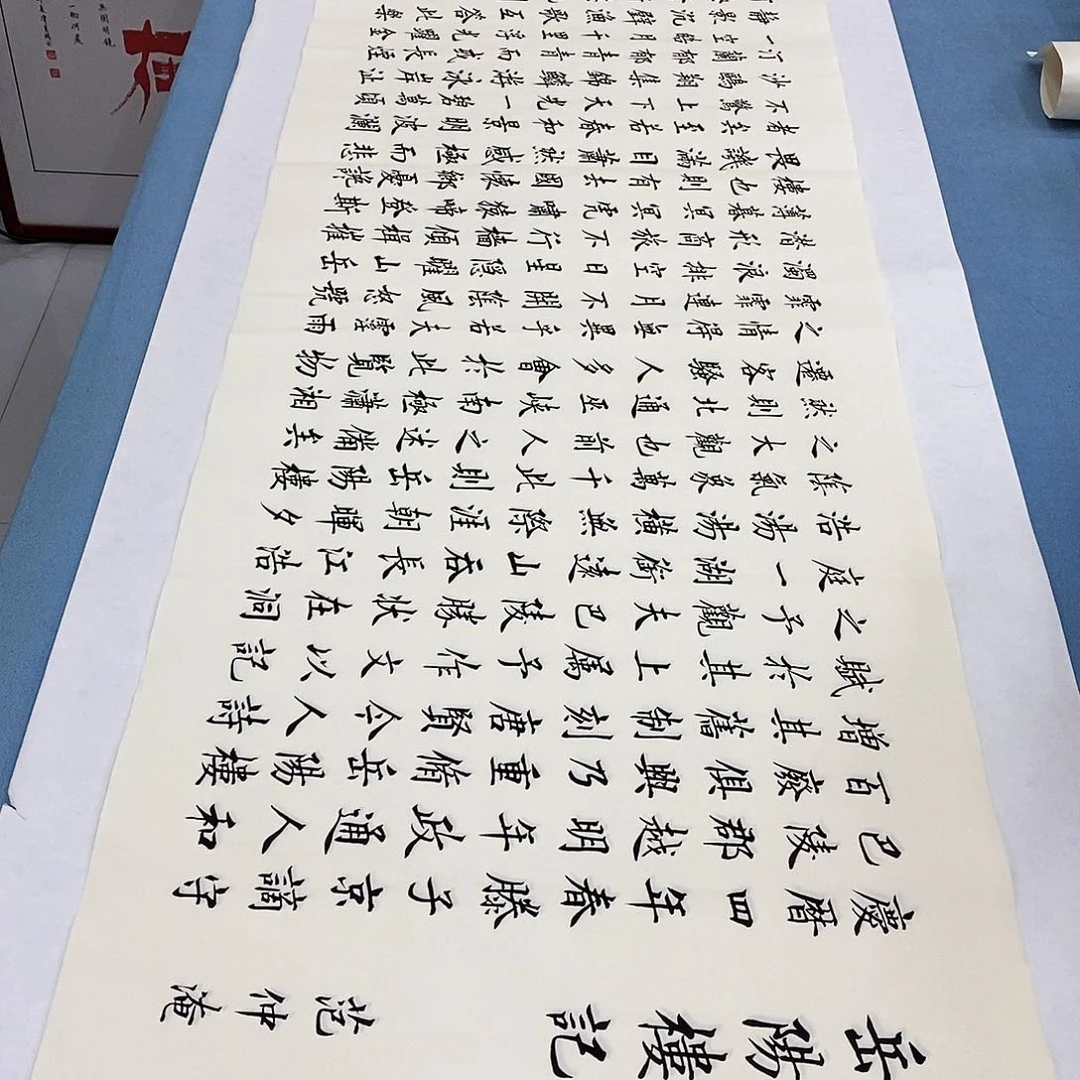 岳陽樓記 范仲淹
慶曆四年春滕子京謫守
巴陵郡越明年政通人和
百廢俱興乃重脩岳陽樓
增其舊制刻唐賢今人詩
賦於其上屬予作文以記
之予觀夫巴陵勝狀在洞
庭一湖銜遠山吞長江浩
浩湯湯橫無際涯朝暉夕
陰氣象萬千此則岳陽樓
之大觀也前人之述備矣
然則北通巫峽南極瀟湘
遷客騷人多會於此覽物
之情得無異乎若夫霪雨
霏霏連月不開陰風怒號
濁浪排空日星隱曜山岳
潛形商旅不行檣傾楫摧
薄暮冥冥虎嘯猿啼登斯
樓也則有去國懷鄉憂讒
畏譏滿目蕭然感極而悲
者矣至若春和景明波瀾
不驚上下天光一碧萬頃
沙鷗翔集錦鱗游泳岸芷
汀蘭郁郁青青而或長煙
一空皓月千里浮光耀金
靜影沉璧漁歌互答此樂